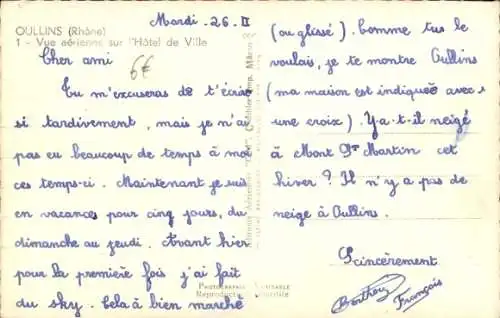 OULLINS (Rhône)
1 - Vue aérienne sur l'Hôtel de Ville
Mardi - 26. II
6€
Cher ami
Tu m'excuseras de t'écrire
si tardivement, mais je n'ai
pas eu beaucoup de temps à moi
ces temps-ci. Maintenant je suis
en vacances pour cinq jours, du
dimanche au jeudi. Avant hier
pour la première fois j'ai fait
du sky. Cela à bien marché
(ou glissé). Comme tu le
voulais, je te montre Oullins
(ma maison est indiquée avec
une croix). Y-a-t-il neigé
à Mont St Martin cet
hiver ? Il n'y a pas de
neige à Oullins.
Scincèrement.
François